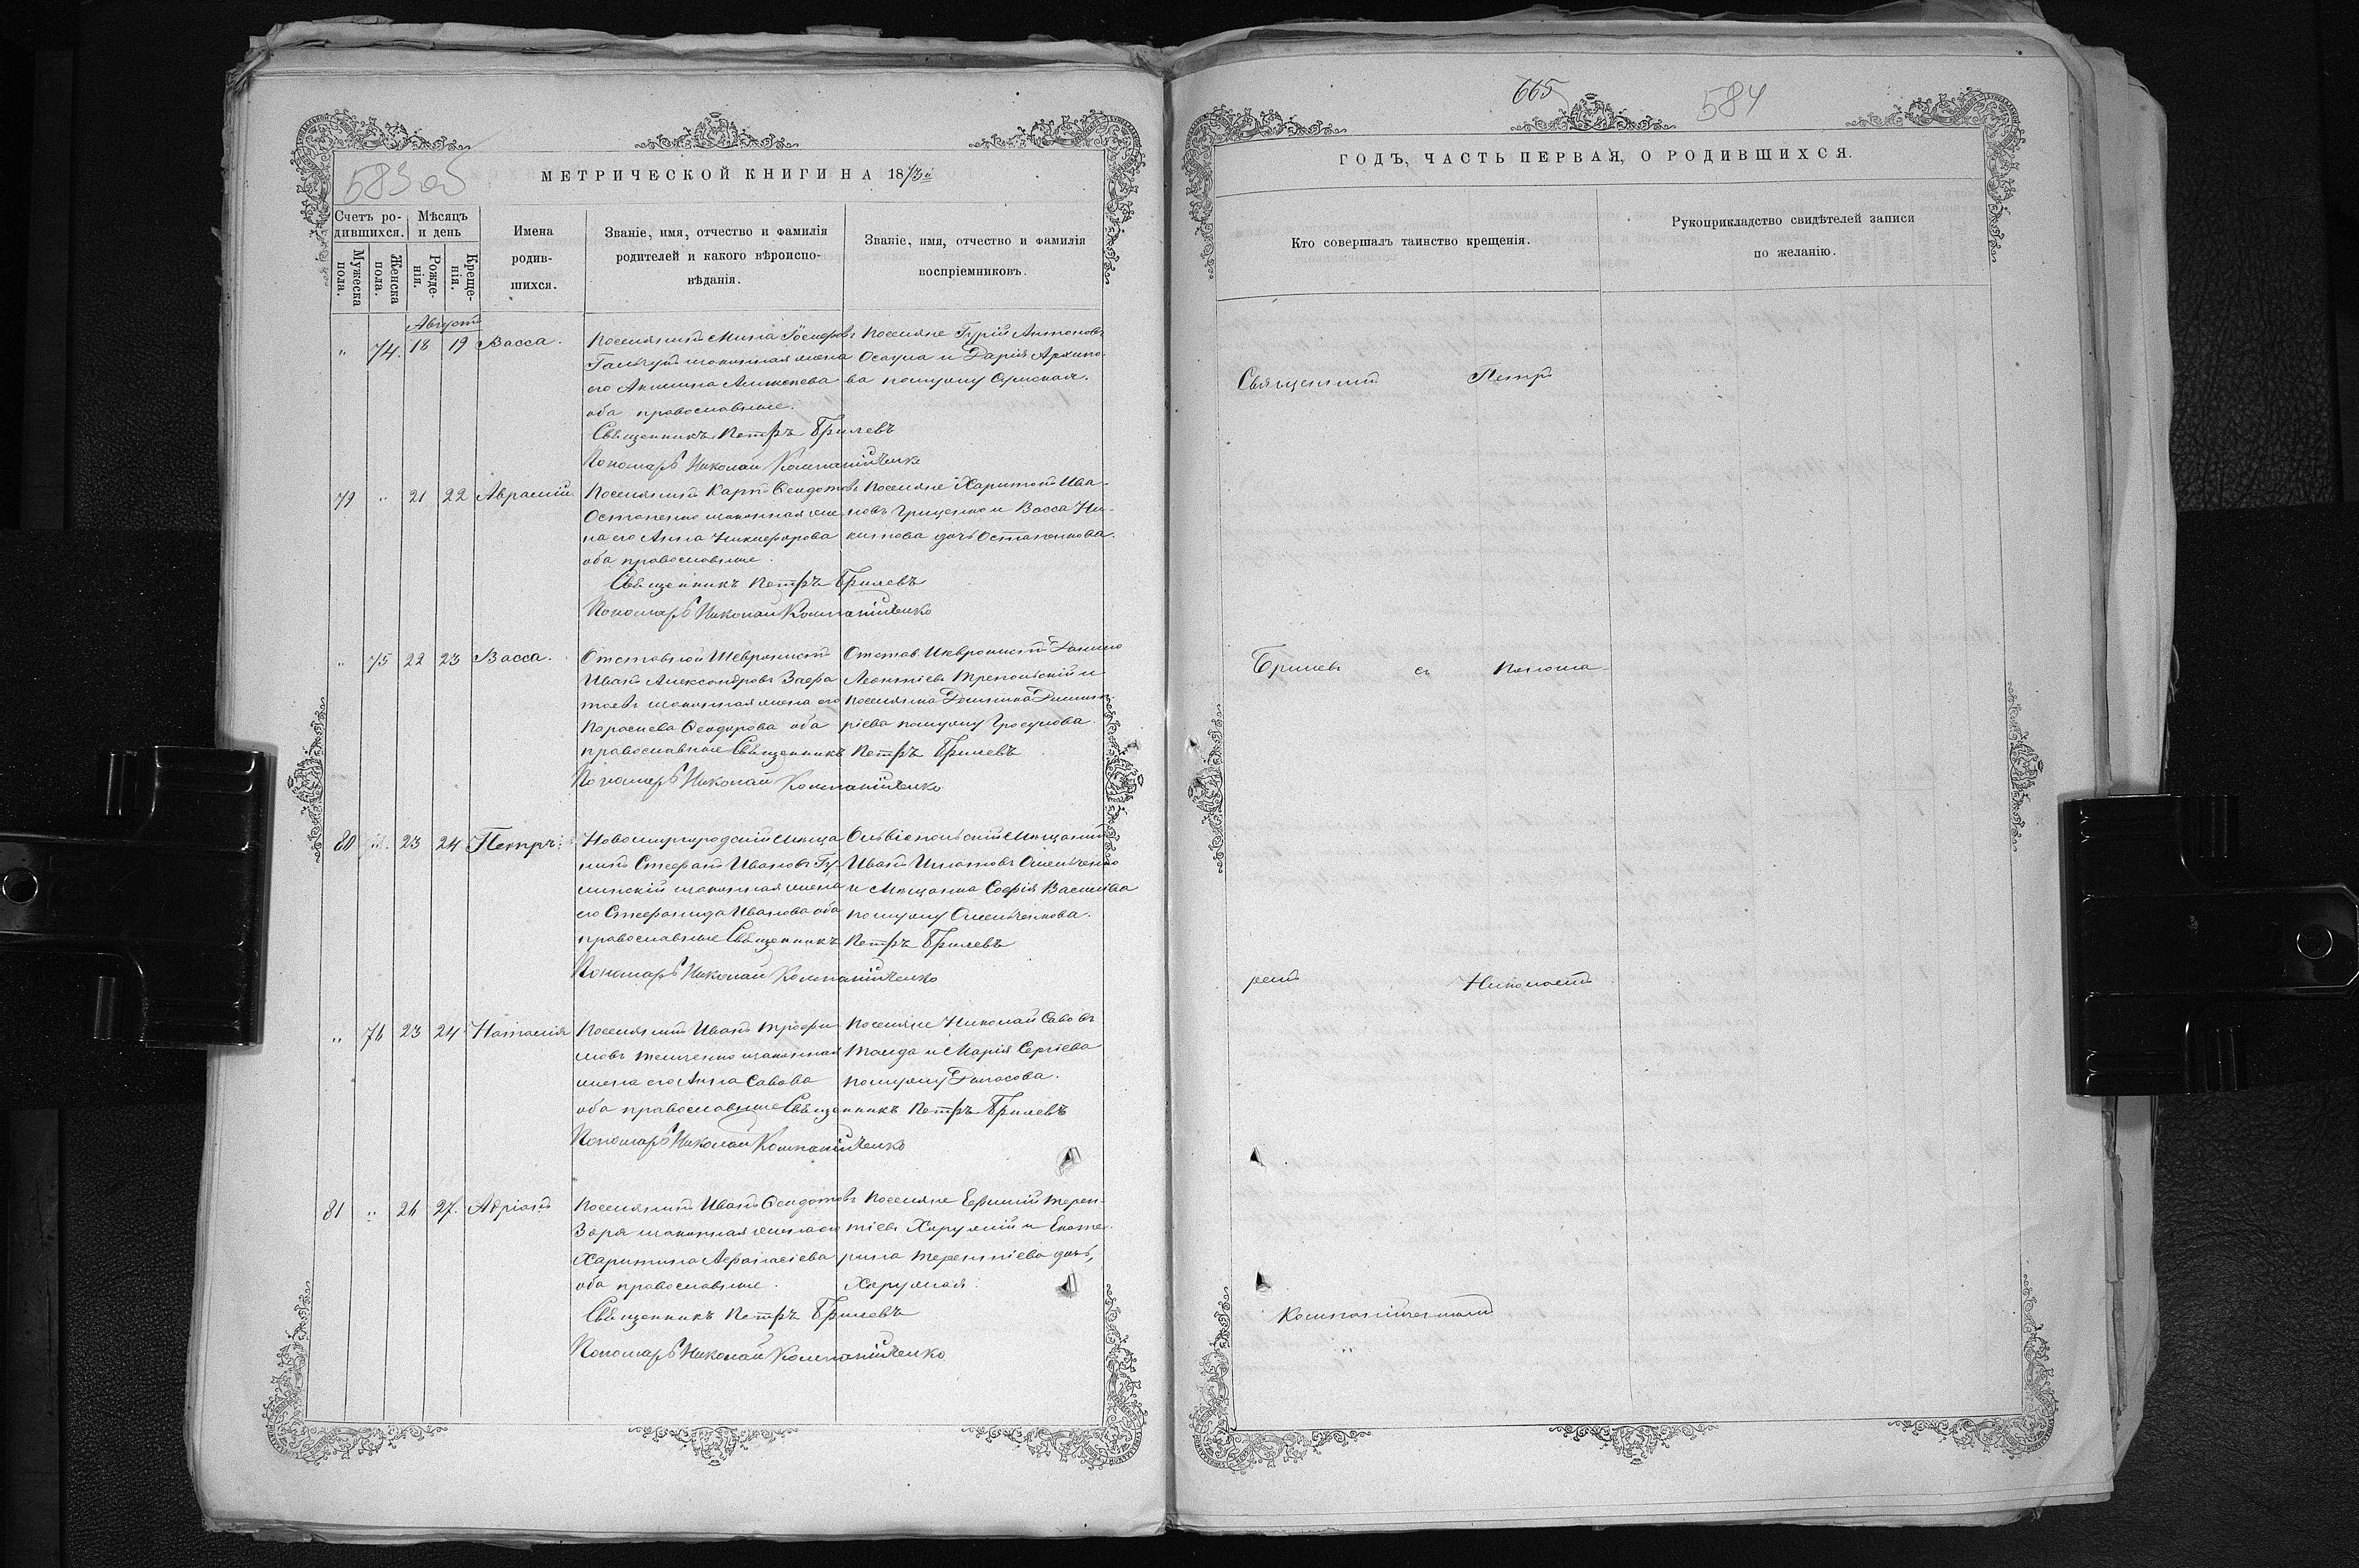 583 об
МЕТРИЧЕСКОЙ КНИГИ НА 1873й
Счетъ ро-
дившихся.
Мѣсяцъ
и день
Мужеска
пола.
Женска
пола.
Рожде-
нія.
Креще-
нія.
Имена
родив-
шихся.
Званіе, имя, отчество и фамилія
родителей и какого вѣроиспо-
вѣданія.
Званіе, имя, отчество и фамилія
воспріемниковъ.
Августъ
" 74. 18 19 Васса.
Поселянинъ Мина
законная жена
его Акилина
оба православные.
Поселяне Гурій Антоновъ
и Дарія Архипо-
ва по мужу
Священникъ Петръ Брилевъ
Пономарь Николай Компанійченко
79 " 21 22 Аврамій
Поселянинъ Карпъ Ѳеодотовъ
Остапенко законная же-
на его Анна Никифорова
оба православные.
Поселяне Харитонъ Ива-
новъ Грищенко и Васса Ни-
китова дочь Остапенкова.
Священникъ Петръ Брилевъ
Пономарь Николай Компанійченко
" 75 22 23 Васса.
Отставной Шевронистъ
Иванъ Александровъ
законная жена его
Параскева Ѳеодорова оба
православные
Отстав. Шевронистъ
Леонтіевъ и
поселянка
по мужу
Священникъ Петръ Брилевъ
Пономарь Николай Компанійченко
80 23 24 Петръ.
Новомиргородскій Мѣща-
нинъ Стефанъ Ивановъ
законная жена
его Стефанида Иванова оба
православные
Ольвіопольскій Мѣщанинъ
Иванъ Игнатовъ Омельченко
и Мѣщанка Софія Василіева
по мужу Омельченкова.
Священникъ Петръ Брилевъ
Пономарь Николай Компанійченко
" 76 23 24 Наталия
Поселянинъ Иванъ Трофи-
мовъ законная
жена его Анна Савова
оба православные
Поселяне Николай Савовъ
и Марія Сергіева
по мужу
Священникъ Петръ Брилевъ
Пономарь Николай Компанійченко
81 " 26 27. Адріанъ
Поселянинъ Иванъ Ѳеодотовъ
Заря законная жена его
Харитина Аѳанасіева
оба православные.
Поселяне Ефимій Терен-
тіевъ и Екате-
рина Терентіева дочь,
Священникъ Петръ Брилевъ
Пономарь Николай Компанійченко
665
584
ГОДЪ, ЧАСТЬ ПЕРВАЯ, О РОДИВШИХСЯ.
Кто совершалъ таинство крещенія.
Рукоприкладство свидѣтелей записи
по желанію.
Священникъ Петръ
Брилевъ съ Понома-
ремъ Николаемъ
Компанійченкомъ